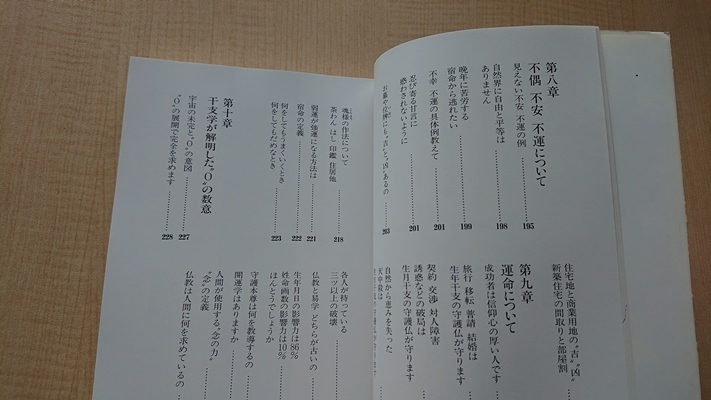 第八章
不偶 不安 不運について
見えない不安 不運の例 195
自然界に自由と平等は
ありません 198
晩年に苦労する
宿命から逃れたい 199
忍び寄る甘言に
惑わされないように 201
不幸 不運の具体例教えて 201
お墓や位牌にも〝吉〟〝凶〟あるの 203
住宅地と商業用地の〝吉〟〝凶〟
新築住宅の間取りと部屋割
第九章
運命について
成功者は信仰心の厚い人です
旅行 移転 普請 結婚は
生年干支の守護仏が守ります
契約 交渉 対人障害
誘惑などの破局は
生月干支の守護仏が守ります
自然から恵みを失った
天中殺は
魂様の作法について
茶わん はし 印鑑 住居他 218
弱運が強運になる方法は 221
宿命の定義 222
何をしてもうまくいくとき
何をしてもだめなとき 223
第十章
干支学が解明した〝0〟の数意
宇宙の未完と〝0〟の意図 227
〝0〟の展開で完全を求めます 228
各人が持っている
三ツ以上の破壊
仏教と易学 どちらが古いの
生年月日の影響力は86%
姓命画数の影響力は10%
ほんとうでしょうか
守護本尊は何を教導するの
開運学はありますか
人間が使用する〝念の力〟
〝念〟の定義
仏教は人間に何を求めているの